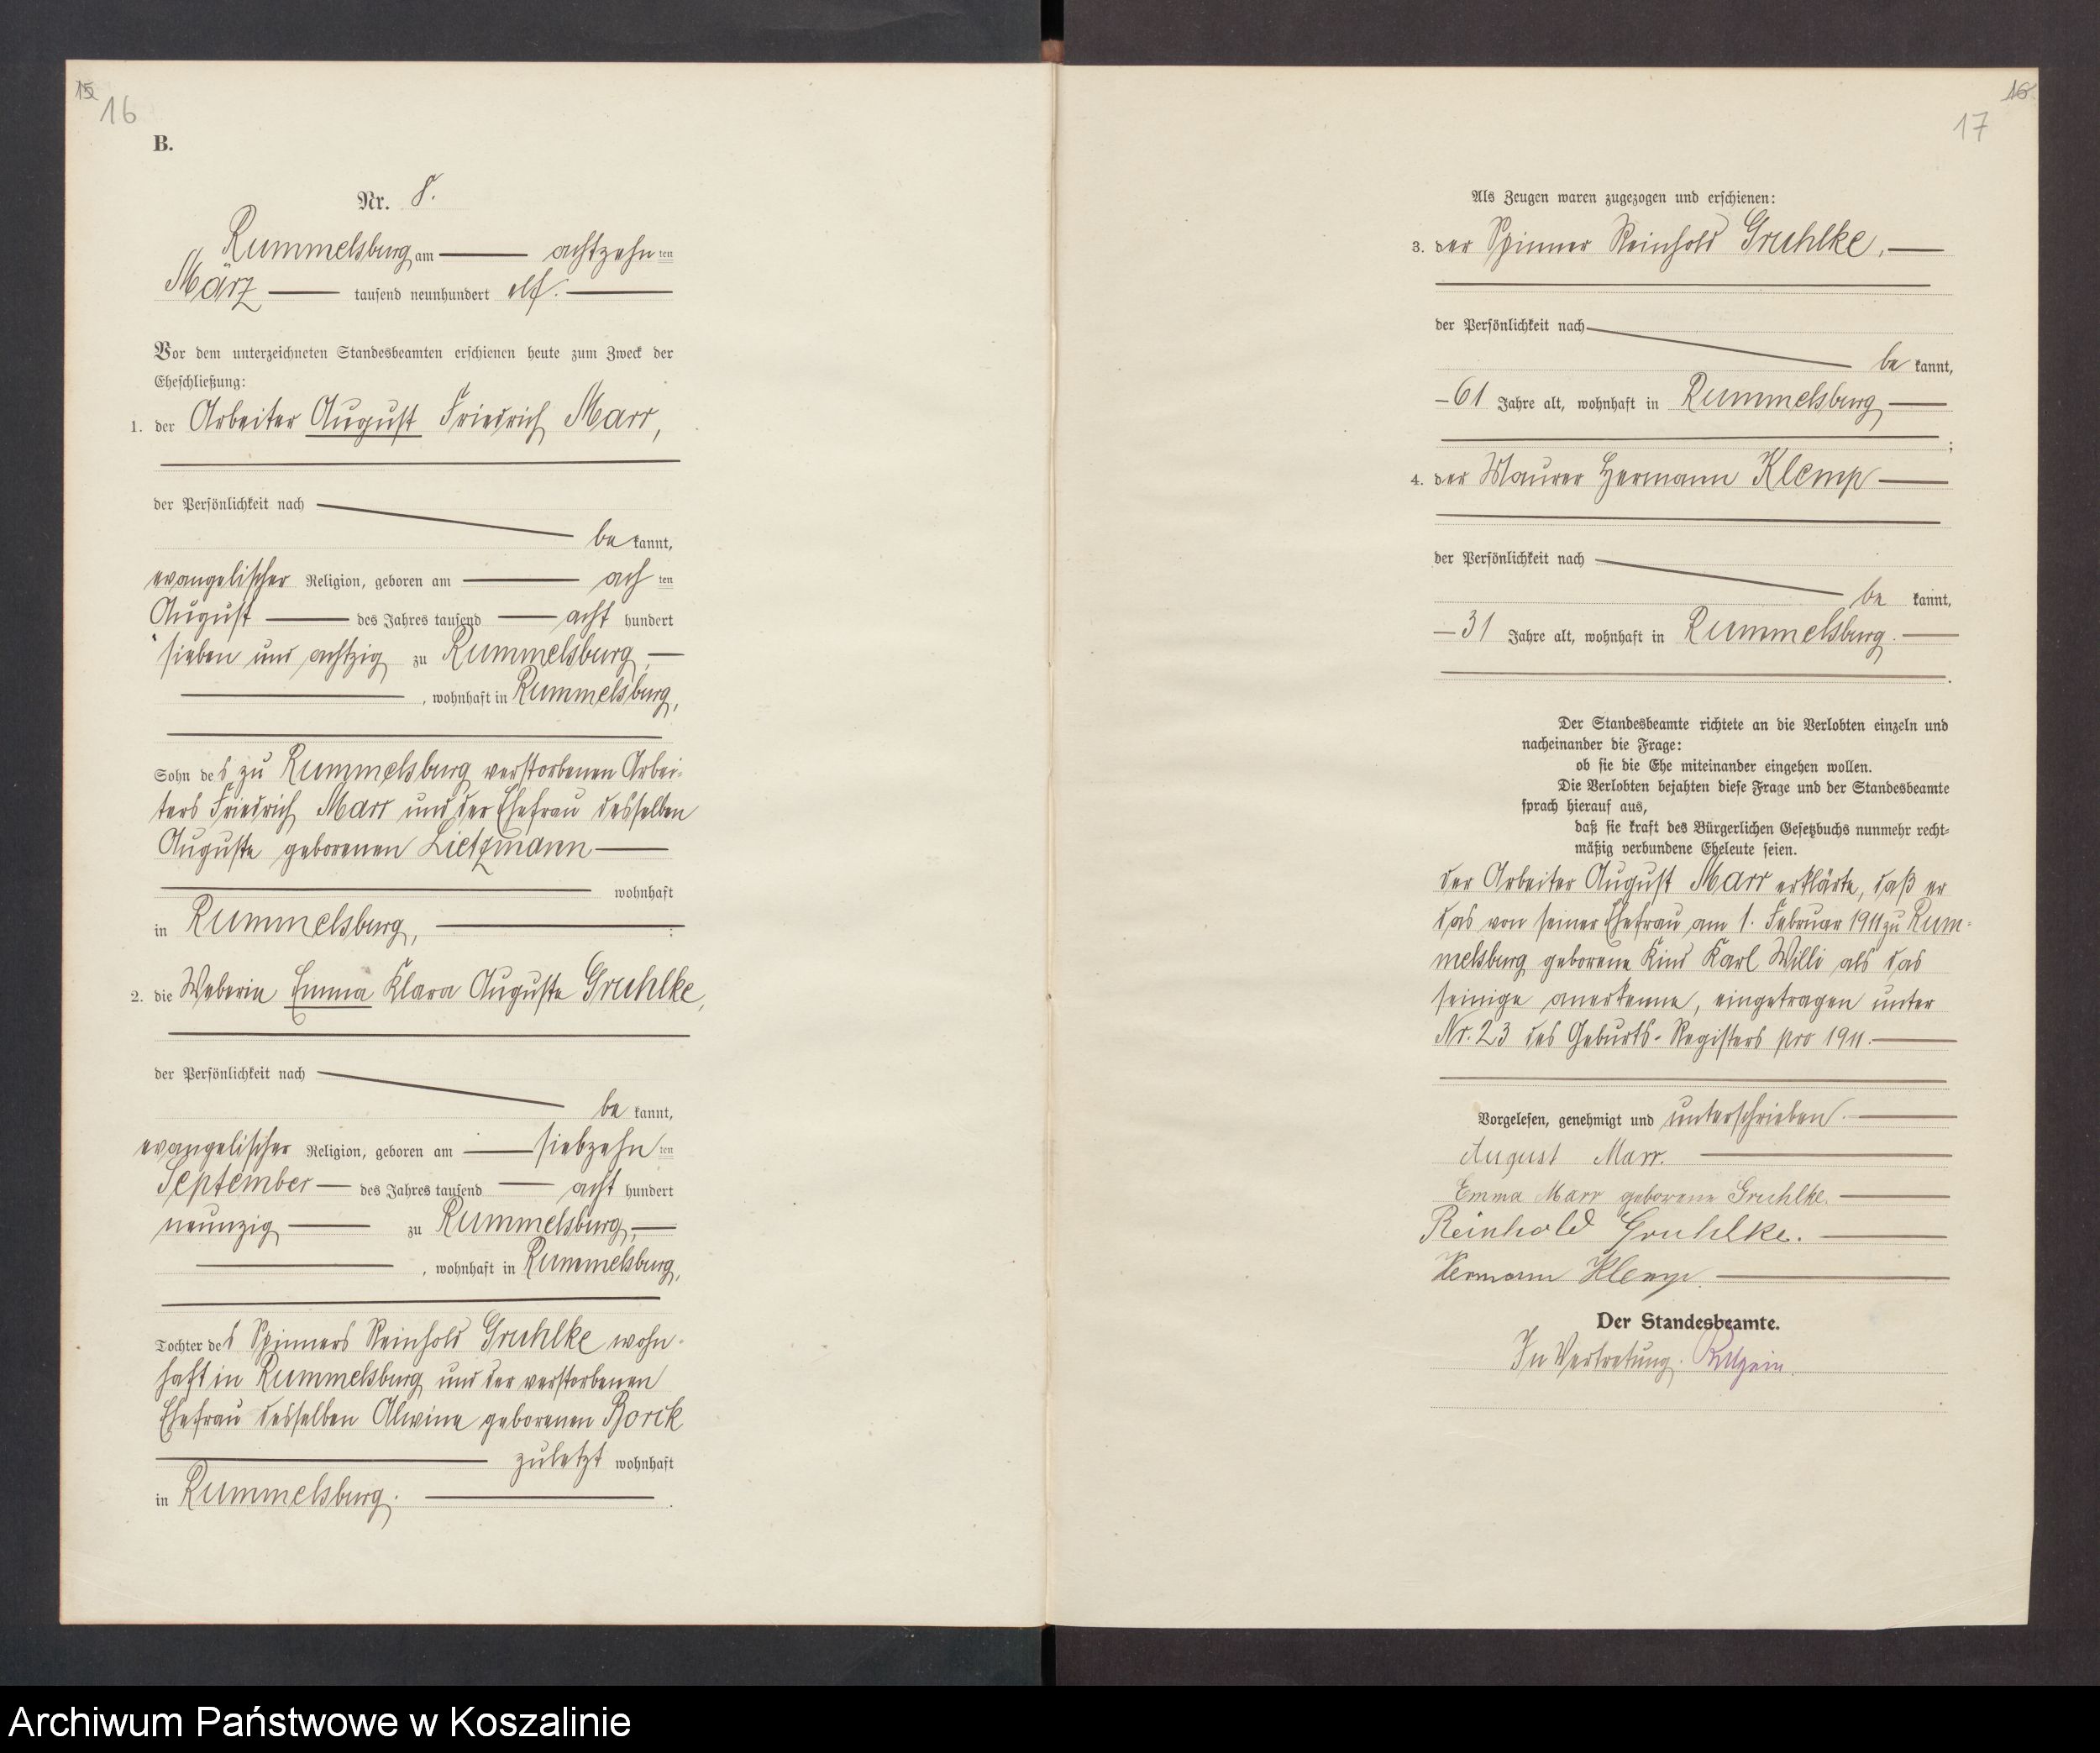 15
16
B.
Nr. 8.
Rummelsburg am achtzehn ten
März tausend neunhundert elf.
Vor dem unterzeichneten Standesbeamten erschienen heute zum Zweck der
Eheschließung:
1. der Arbeiter August Friedrich Marr,
der Persönlichkeit nach
be kannt,
evangelischer Religion, geboren am ach ten
August des Jahres tausend acht hundert
sieben und achtzig zu Rummelsburg,
, wohnhaft in Rummelsburg,
Sohn des zu Rummelsburg verstorbenen Arbei-
ters Friedrich Marr und der Ehefrau desselben
Auguste geborenen Lietzmann
wohnhaft
in Rummelsburg, :
2. die Weberin Emma Klara Auguste Gruhlke,
der Persönlichkeit nach
be kannt,
evangelischer Religion, geboren am siebzehn ten
September des Jahres tausend acht hundert
neunzig zu Rummelsburg,
, wohnhaft in Rummelsburg,
Tochter des Spinners Reinhold Gruhlke wohn-
haft in Rummelsburg und der verstorbenen
Ehefrau desselben Alwine geborenen Borck
zuletzt wohnhaft
in Rummelsburg. .
16
17
Als Zeugen waren zugezogen und erschienen:
3. der Spinner Reinhold Gruhlke,
der Persönlichkeit nach
be kannt,
61 Jahre alt, wohnhaft in Rummelsburg
;
4. der Maurer Hermann Klemp
der Persönlichkeit nach
be kannt,
31 Jahre alt, wohnhaft in Rummelsburg.
.
Der Standesbeamte richtete an die Verlobten einzeln und
nacheinander die Frage:
ob sie die Ehe miteinander eingehen wollen.
Die Verlobten bejahten diese Frage und der Standesbeamte
sprach hierauf aus,
daß sie kraft des Bürgerlichen Gesetzbuchs nunmehr recht-
mäßig verbundene Eheleute seien.
der Arbeiter August Marr erklärte, daß er
das von seiner Ehefrau am 1. Februar 1911 zu Rum-
melsburg geborene Kind Karl Willi als das
seinige anerkenne, eingetragen unter
Nr. 23 des Geburts-Registers pro 1911.
Vorgelesen, genehmigt und unterschrieben.
August Marr.
Emma Marr geborene Gruhlke.
Reinhold Gruhlke.
Hermann Klemp
Der Standesbeamte.
In Vertretung.
Archiwum Państwowe w Koszalinie